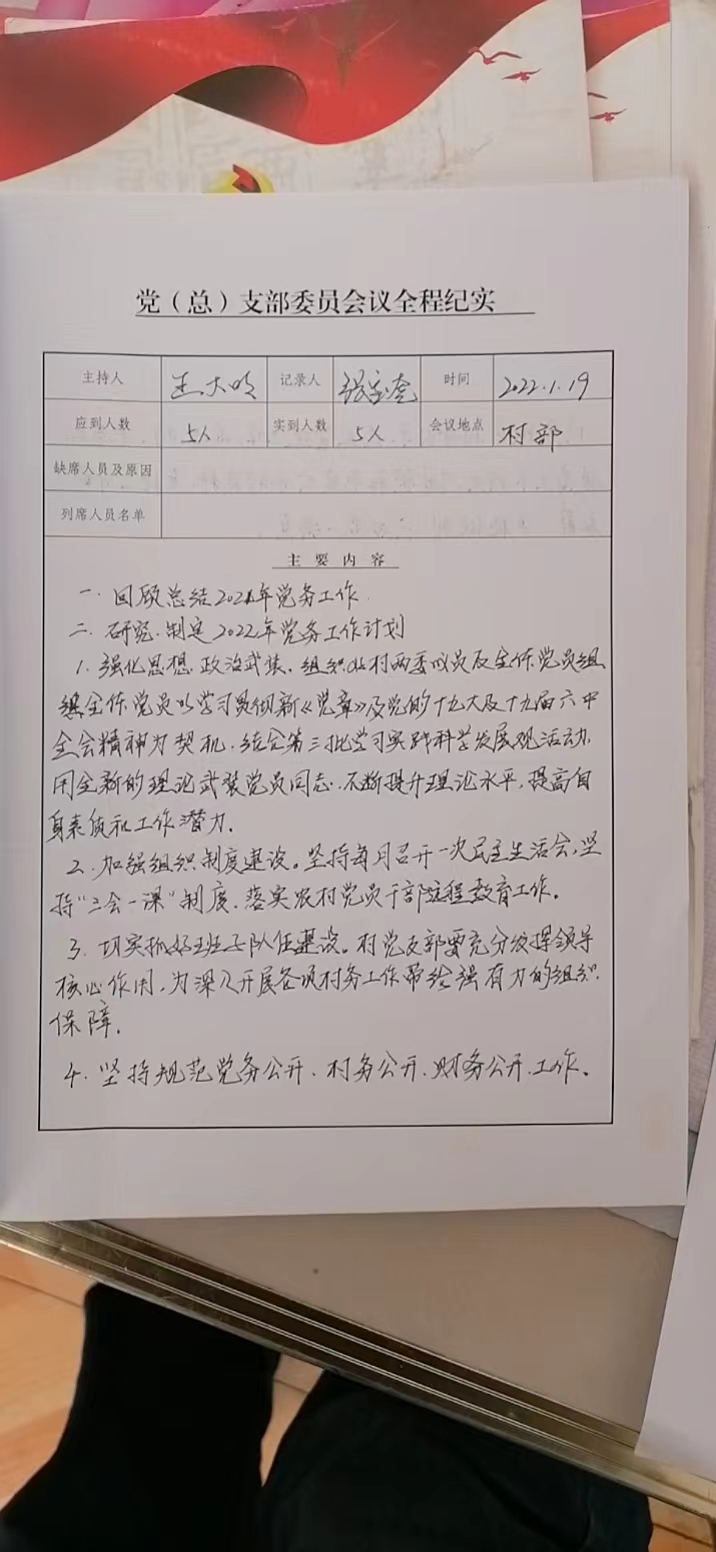 党（总）支部委员会议全程纪实
主持人 王大明 记录人 张宝奎 时间 2022.1.19
应到人数 5人 实到人数 5人 会议地点 村部
缺席人员及原因
列席人员名单
主要内容
一. 回顾总结2021年党务工作.
二. 研究.制定2022年党务工作计划
1. 强化思想.政治武装. 组织 村两委 员及全体党员组
织全体党员以学习贯彻新《党章》及党的十九大及十九届六中
全会精神为契机.结合第三批学习实践科学发展观活动.
用全新的理论武装党员同志.不断提升理论水平,提高自
身素质和工作潜力.
2. 加强组织制度建设。坚持每月召开一次民主生活会,坚
持"三会一课"制度.落实农村党员干部远程教育工作。
3. 切实抓好班子队伍建设。村党支部要充分发挥领导
核心作用,为深入开展各项村务工作带给强有力的组织
保障.
4. 坚持规范党务公开.村务公开.财务公开.工作.